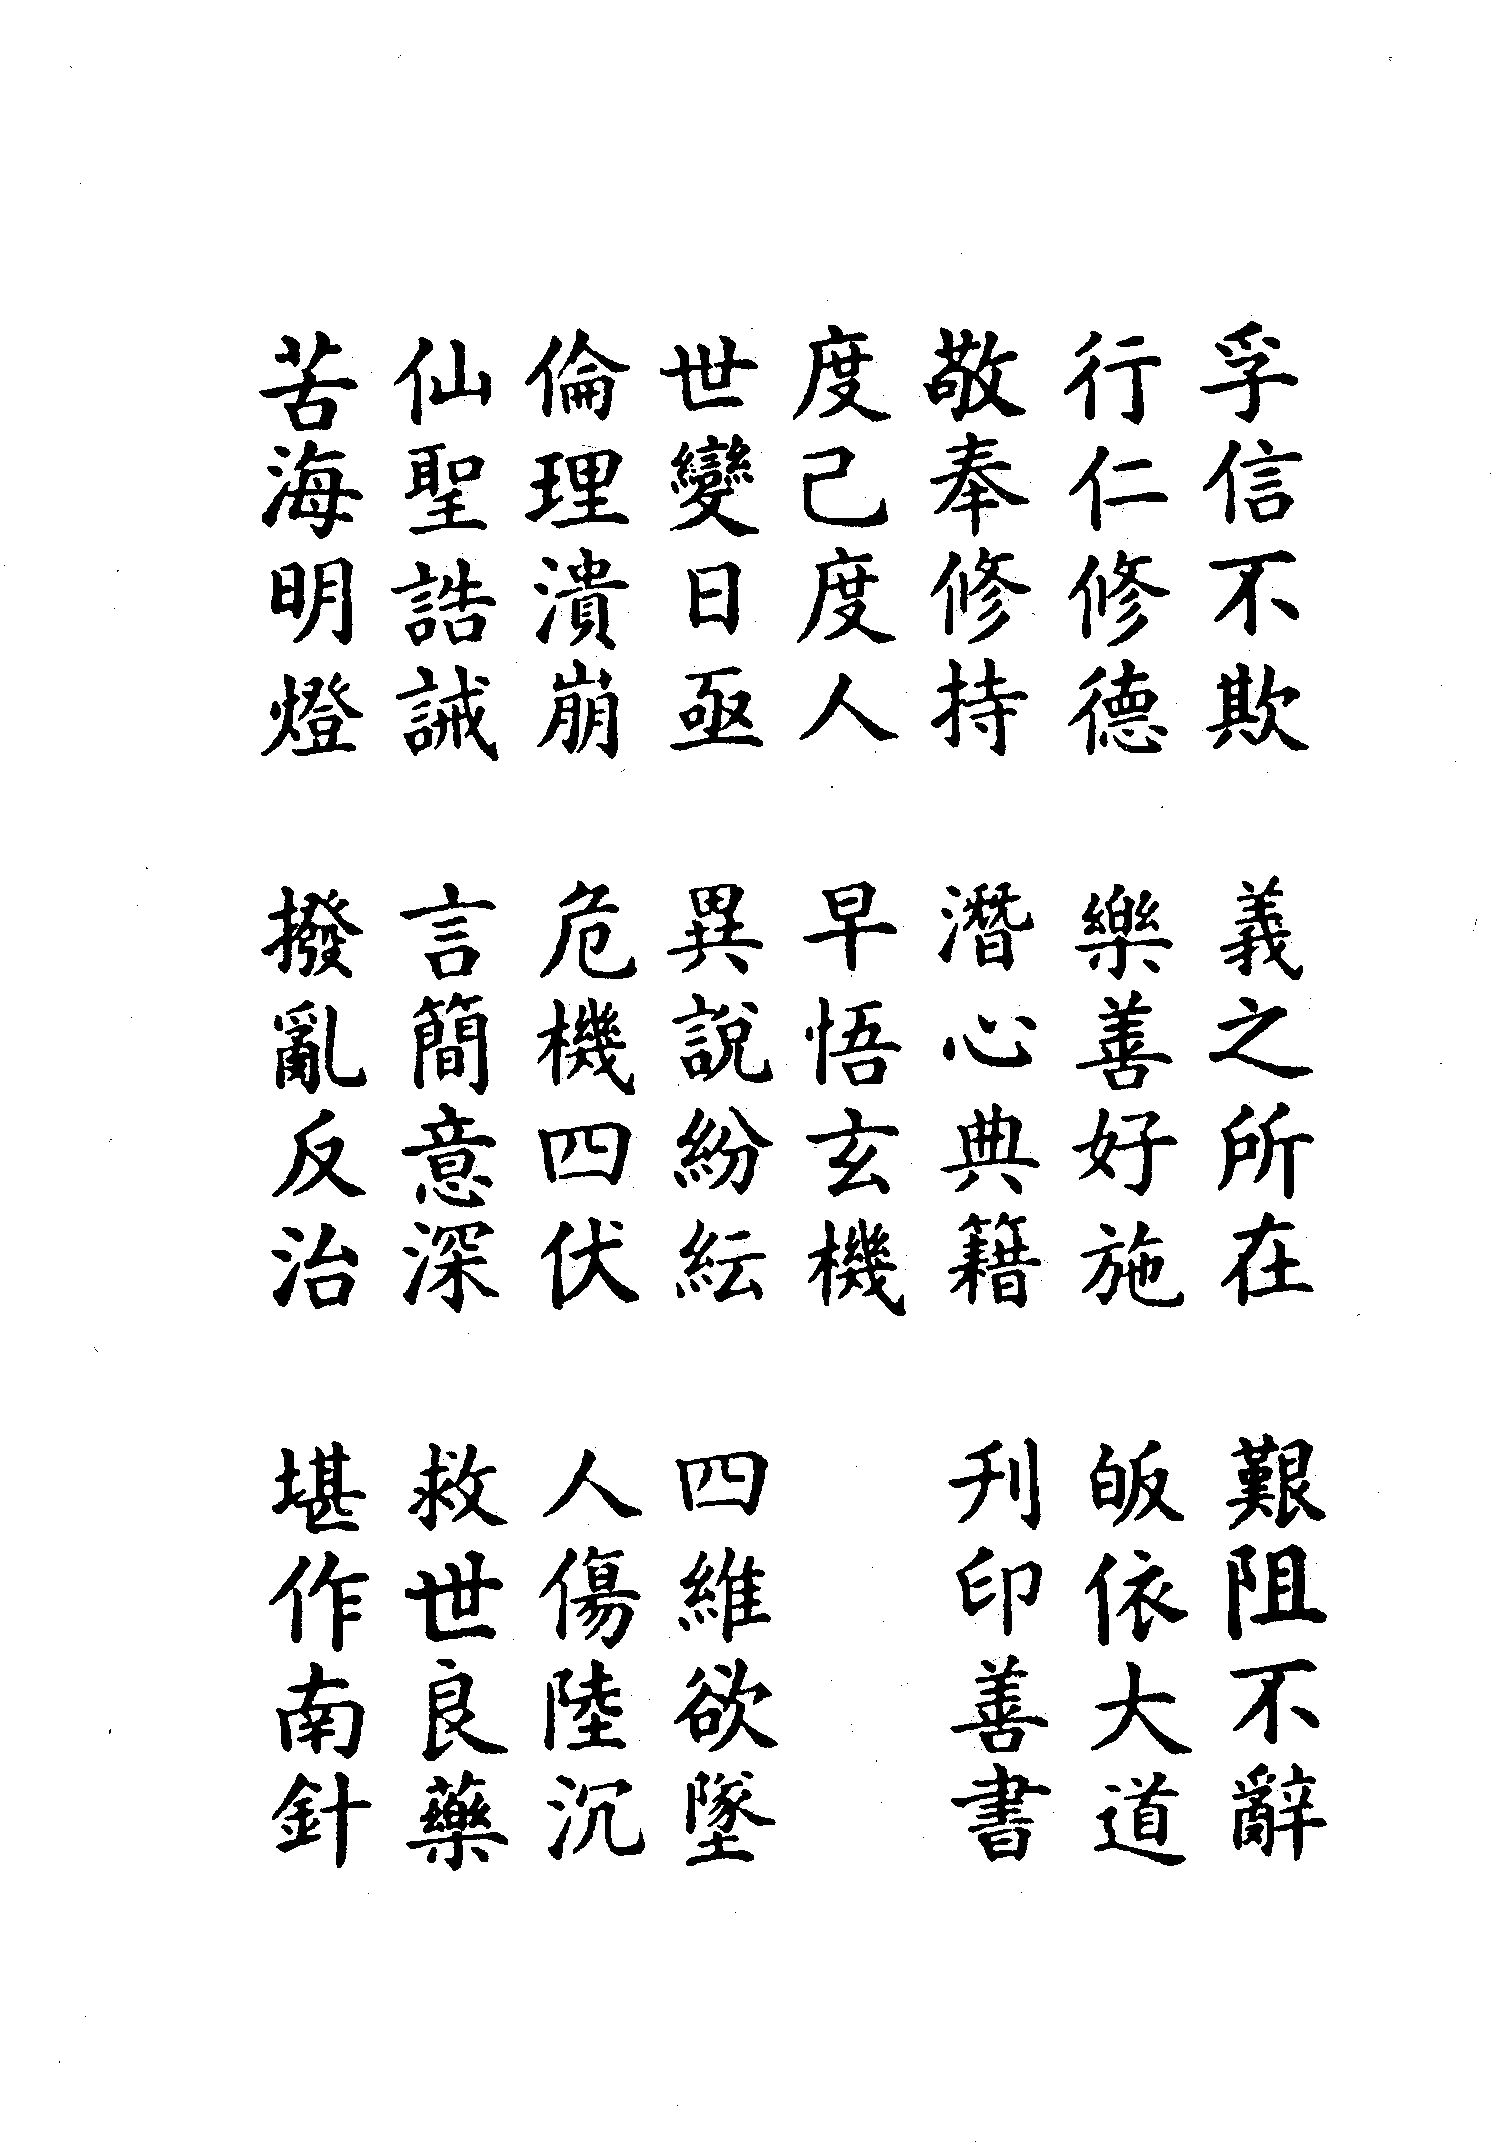 孚信不欺　義之所在　艱阻不辭
行仁修德　樂善好施　皈依大道
敬奉修持　潛心典籍　刊印善書
度己度人　早悟玄機
世變日亟　異說紛紜　四維欲墜
倫理潰崩　危機四伏　人傷陸沉
仙聖誥誡　言簡意深　救世良藥
苦海明燈　撥亂反治　堪作南針